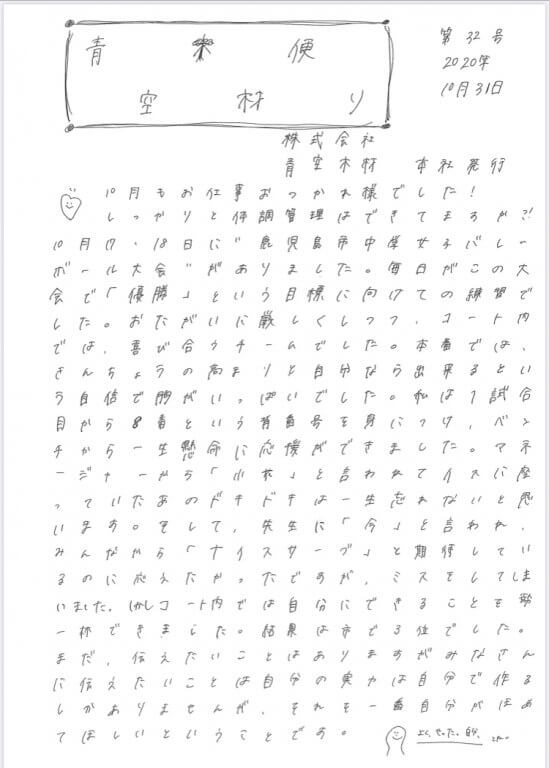 青木便
空材り
第32号
2020年
10月31日
株式会社
青空木材 本社発行
10月もお仕事おつかれ様でした!
しっかりと体調管理はできてますか?!
10月17・18日に"鹿児島市中学女子バレー
ボール大会"がありました。毎日がこの大
会で「優勝」という目標に向けての練習で
した。おたがいに厳しくしつつ、コート内
では、喜び合うチームでした。本番では、
きんちょうの高まりと自分なら出来るとい
う自信で胸がいっぱいでした。私は1試合
目から8番という背番号を身につけ、ベン
チから一生懸命に応援ができました。マネ
ージャーから「小花」と言われてイスに座
っていたあのドキドキは一生忘れないと思
います。そして、先生に「今」と言われ、
みんなから「ナイスサーブ」と期待してい
るのに応えたかったですが、ミスをしてしま
いました。しかしコート内では自分にできることを精
一杯できました。結果は市で3位でした。
まだ、伝えたいことはありますがみなさん
に伝えたいことは自分の実力は自分で作る
しかありませんが、それを一番自分がほめ
てほしいということです。
よく、やった。自分。